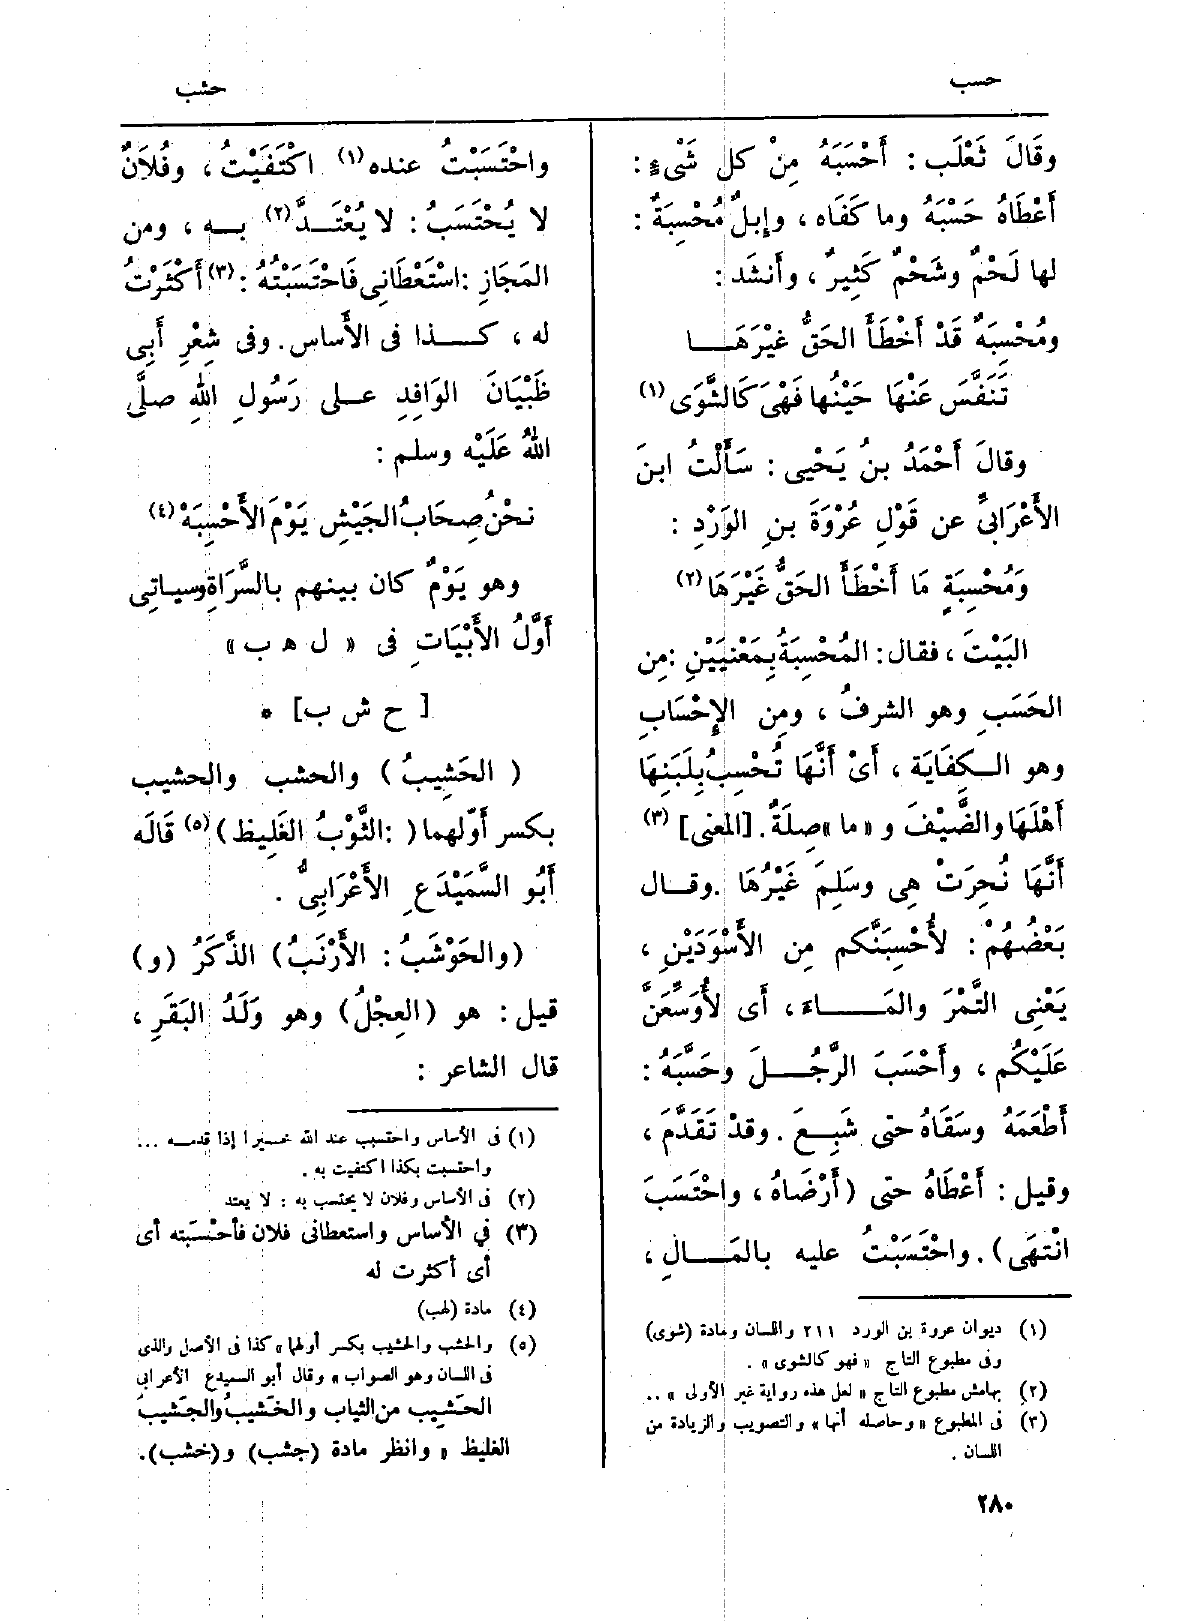 حسب
حشب
وقَالَ ثَعْلَب : أَحْسَبَهُ مِنْ كل شَىْءٍ :
أَعْطَاهُ حَسْبَهُ وما كَفَاه ، وإِبلٌ مُحْسِبَةٌ :
لها لَحْمٌ وشَحْمٌ كَثِيرٌ ، وأَنشَد :
ومُحْسِبَةٌ قَدْ أَخْطَأَ الحَقُّ غيْرَهَا
تَنَفَّسَ عَنْهَا حَيْنُها فَهْىَ كَالشَّوَى (١)
وقالَ أَحْمَدُ بنُ يَحْيى : سَأَلْتُ ابنَ
الأَعْرَابىِّ عن قَوْلِ عُرْوَةَ بنِ الوَرْدِ :
وَمُحْسِبَةٍ مَا أَخْطَأَ الحَقُّ غَيْرَهَا (٢)
البَيْتَ ، فقال : المُحْسِبَةُ بِمَعْنيَيْنِ : مِن
الحَسَبِ وهو الشرفُ ، ومِن الإِحْسَابِ
وهو الكِفَايَة ، أَىْ أَنَّهَا تُحْسِبُ بِلَبَنِهَا
أَهْلَهَا والضَّيْفَ و « ما » صِلَةٌ . [المعنى] (٣)
أَنَّهَا نُحِرَتْ هِى وسَلِمَ غَيْرُهَا . وقال
بَعْضُهُمْ : لأُحْسِبَنَّكم مِن الأَسْوَدَيْنِ ،
يَعْنِى التَّمْرَ والمَاءَ ، أَى لأُوَسِّعَنَّ
عَلَيْكُم ، وأَحْسَبَ الرَّجُلَ وحَسَّبَهُ :
أَطْعَمَهُ وسَقَاهُ حتى شَبِعَ . وقدْ تَقَدَّمَ ،
وقيل : أَعْطَاهُ حتى (أَرْضَاهُ ، واحْتَسَبَ
انْتهَى) . واحْتَسَبْتُ عليه بالمَالِ ،
(١) ديوان عروة بن الورد ٢١١ واللسان ومادة (شوى)
وفى مطبوع التاج « فهو كالشوى » .
(٢) بهامش مطبوع التاج « لعل هذه رواية غير الأولى » ..
(٣) فى المطبوع « وحاصله أنها » والتصويب والزيادة من
اللسان .
واحْتَسَبْتُ عنده (١) اكْتَفَيْتُ ، وفُلَانٌ
لا يُحْتَسَبُ : لا يُعْتَدَّ (٢) به ، ومن
المَجَازِ : اسْتَعْطَانِى فَاحْتَسَبْتُهُ : (٣) أَكْثَرْتُ
له ، كذا فى الأَساس . وفى شِعْرِ أَبِى
ظَبْيَانَ الوَافِدِ على رَسُولِ اللهِ صلَّى
اللهُ عَلَيْه وسلم :
نحْنُ صِحَابُ الجَيْشِ يَوْمَ الأَحْسِبَهْ (٤)
وهو يَوْمٌ كان بينهم بالسَّرَاةِ وسياتى
أَوَّلُ الأَبْيَاتِ فى « ل ه ب »
[ ح ش ب ] *
( الحَشِيبُ ) والحشب والحشيب
بكسر أَوّلهما ( : الثَّوْبُ الغَلِيظ ) (٥) قَالَه
أَبُو السَّمَيْدَعِ الأَعْرَابِىُّ .
(والحَوْشَبُ : الأَرْنَبُ) الذَّكَرُ (و)
قيل : هو (العِجْلُ) وهو وَلَدُ البَقَرِ ،
قال الشاعر :
(١) فى الأساس واحتسب عند الله خيرا إذا قدمه ...
واحتسبت بكذا اكتفيت به .
(٢) فى الأساس وفلان لا يحتسب به : لا يعتد
(٣) في الأساس واستعطانى فلان فأحْسَبته أى
أى أكثرت له
(٤) مادة (لهب)
(٥) والحشب والحشيب بكسر أولهما » كذا فى الأصل والذى
فى اللسان وهو الصواب » وقال أبو السميدع الأعرابى
الحَشيب من الثياب والخَشيبُ والجَشيبُ
الغليظ » وانظر مادة (جشب) و(خشب).
٢٨٠